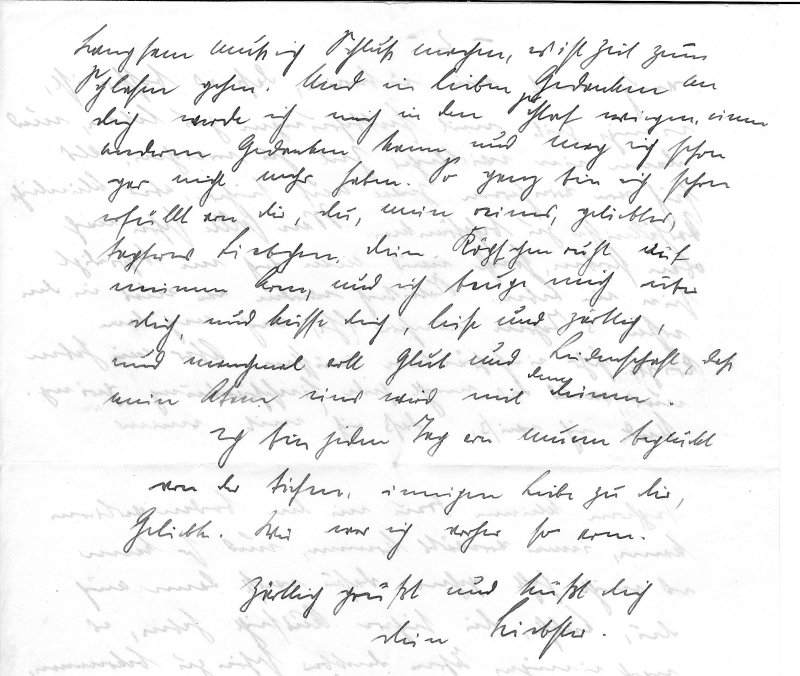 Langsam muß ich Schluß machen, es ist Zeit zum
Schlafen gehen. Und in lieben Gedanken an
dich werde ich mich in den Schlaf wiegen, einen
anderen Gedanken kann und mag ich schon
gar nicht mehr haben. So ganz bin ich schon
erfüllt von dir, du, mein reines, geliebtes,
tapferes Liebchen. Dein Köpfchen ruht auf
meinem Arm, und ich beuge mich über
dich und küsse dich, leise und zärtlich,
und manchmal voll Glut und Leidenschaft, daß
mein Atem eins wird mit dem deinen.
Ich bin jeden Tag von neuem beglückt
von der tiefen, innigen Liebe zu dir,
Geliebte. Wie war ich vorher so arm.
Zärtlich grüßt und küßt dich
dein Liebster.